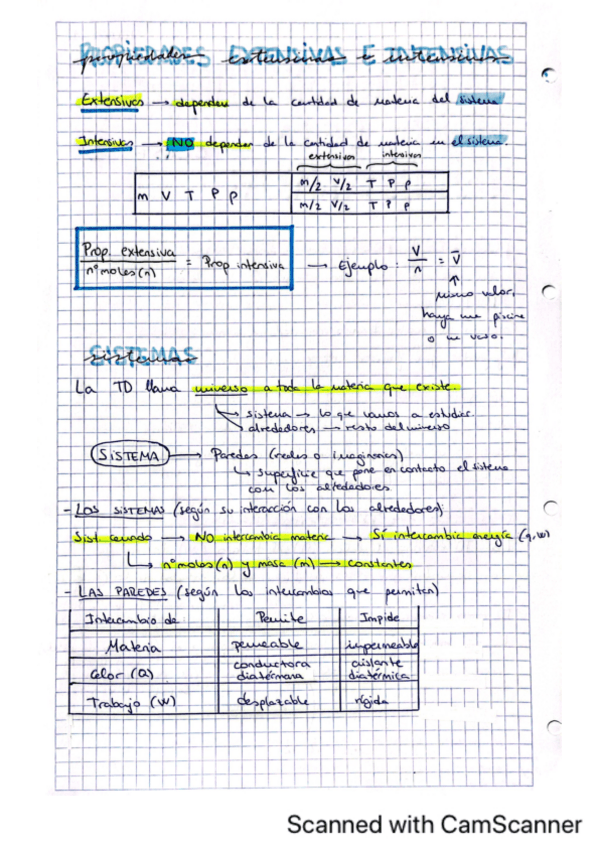 PROPIEDADES EXTENSIVAS E INTENSIVAS
propiedades extensivas e intensivas
Extensivas → dependen de la cantidad de materia del sistema
Intensivas → NO dependen de la cantidad de materia en el sistema.
extensivas intensivas
m V T P ρ
m/2 V/2 T P ρ
m/2 V/2 T P ρ
Prop. extensiva / nº moles (n) = Prop intensiva → Ejemplo: V/n = V̄
↑
mismo valor,
haya una piscina
o un vaso.
SISTEMAS
sistemas
La TD llama universo a toda la materia que existe.
↳ sistema → lo que vamos a estudiar
alrededores → resto del universo
SISTEMA → Paredes (reales o imaginarias)
↳ superficie que pone en contacto el sistema
con los alrededores
- LOS SISTEMAS (según su interacción con los alrededores)
Sist. cerrado → NO intercambia materia → Sí intercambia energía (q, w)
↳ nº moles (n) y masa (m) → constantes
- LAS PAREDES (según los intercambios que permiten)
Intercambio de Permite Impide
Materia permeable impermeable
Calor (Q) conductora diatérmana aislante diatérmica
Trabajo (W) desplazable rígida
Scanned with CamScanner